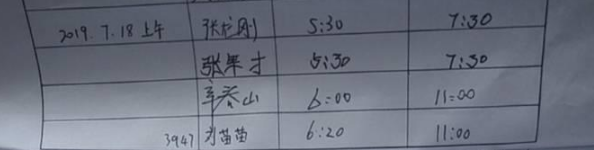 2019.7.18上午 张龙刚 5:30 7:30
张年才 5:30 7:30
辛春山 6:00 11:00
3947 刘苗苗 6:20 11:00